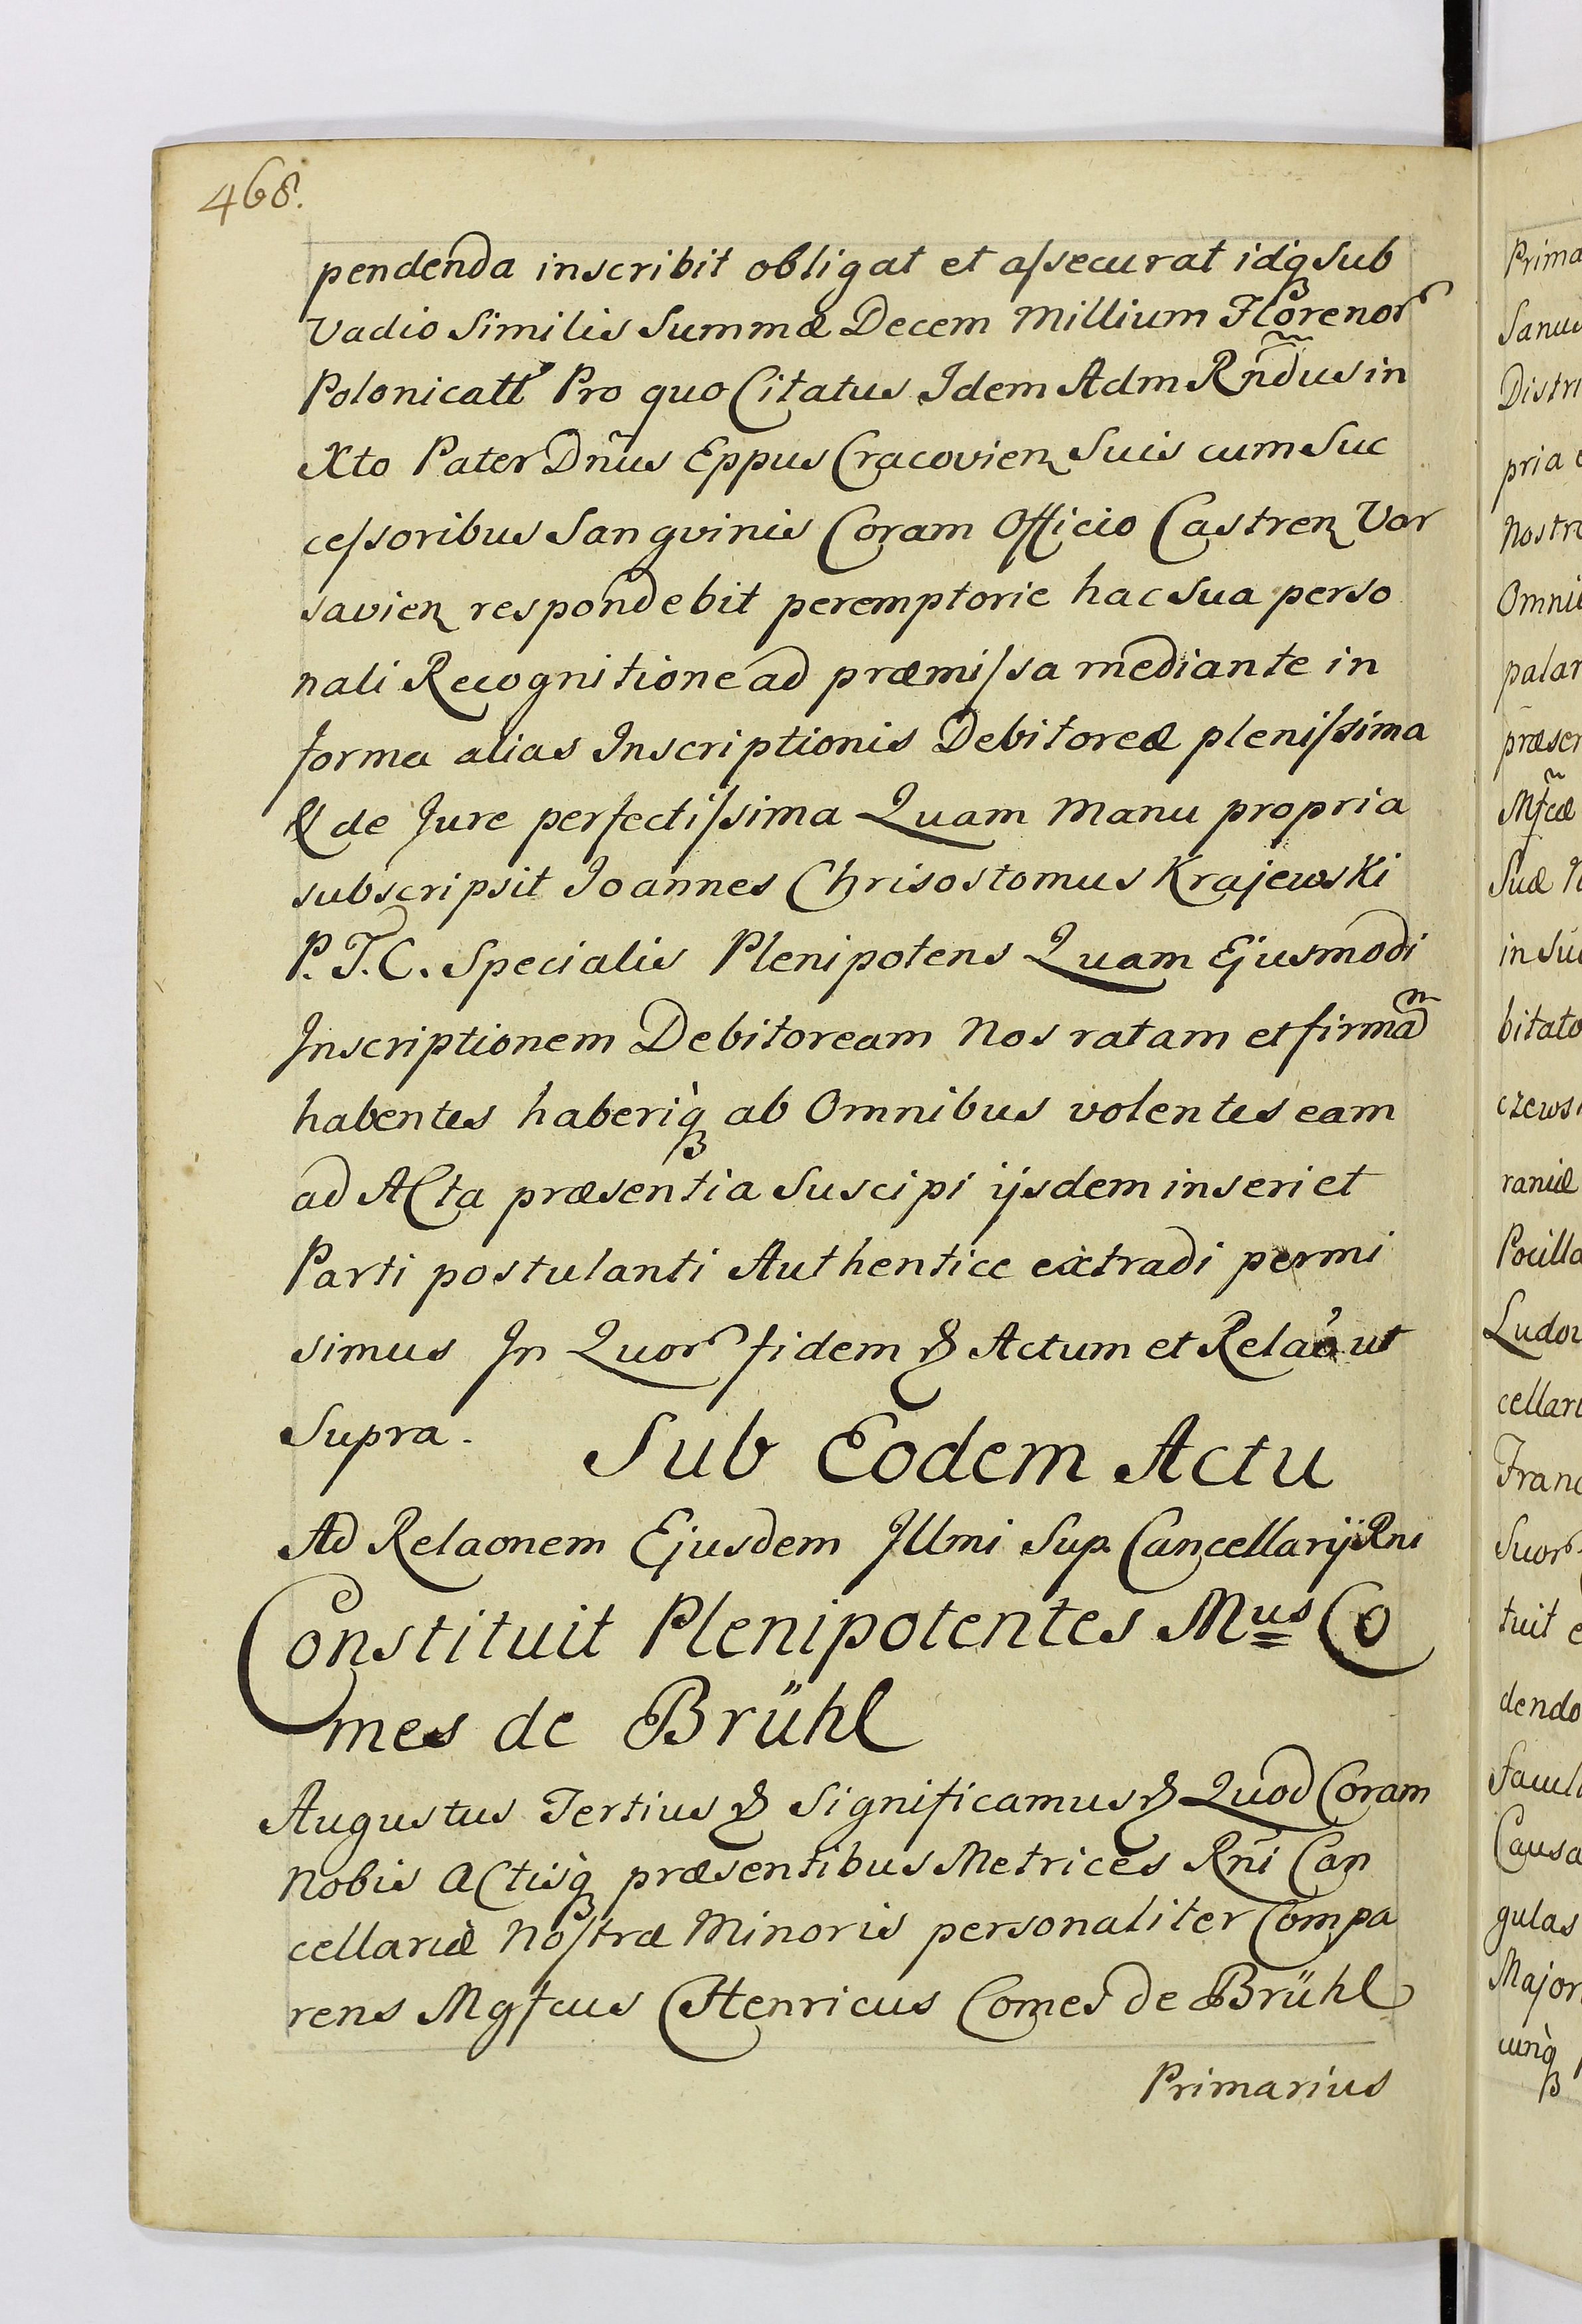 468.
pendenda inscribit obligat et assecurat idq₃ Sub
Vadio Similis Summæ Decem Millium Florenor
Polonicall Pro quo Citatus Idem Adm Rñdus in
Xto Pater Dñus Eppus Cracovien Suis cum Suc
cessoribus Sangvinis Coram Officio Castren Var
savien respondebit peremptorie hac Sua perso
nali Recognitione ad præmissa mediante in
forma alias Inscriptionis Debitoreæ plenissima
& de Jure perfectissima Quam Manu propria
subscripsit Joannes Chrisostomus Krajewski
P. T. C. Specialis Plenipotens Quam Ejusmodi
Inscriptionem Debitoream Nos ratam et firmam
habentes haberiq₃ ab Omnibus volentes eam
ad Acta præsentia Suscipi ijsdem inseri et
Parti postulanti Authentice extradi permi
simus In Quor fidem & Actum et Relao ut
Supra.
Sub Eodem Actu
Ad Relaonem Ejusdem Illmi Sup. Cancellarij Rni
Constituit Plenipotentes Mus Co
mes de Brühl
Augustus Tertius & Significamus & Quod Coram
Nobis Actisq₃ præsentibus Metrices Rñi Can
cellariæ Nostræ Minoris personaliter Compa
rens Mgfcus Henricus Comes de Brühl
Primarius
Prima
Sanu
Distri
pria
Nostr
Omni
palar
præser
Mfcæ
Suæ
in Su
bitato
czews
raniæ
Pocilla
Ludov
cellari
Franc
Suor
tuit e
dendo
Facul
Causa
gulas
Major
cunq₃